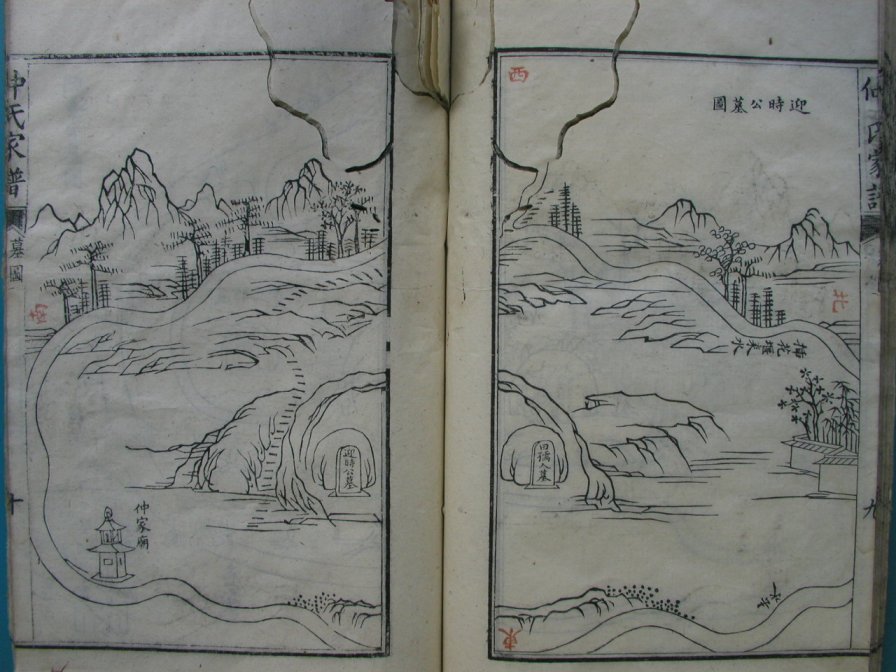 仲氏家譜
九
迎時公墓圖
西
北
梅花堰來水
田孺人墓
東
仲氏家譜
墓圖
十
南
迎時公墓
仲家廟